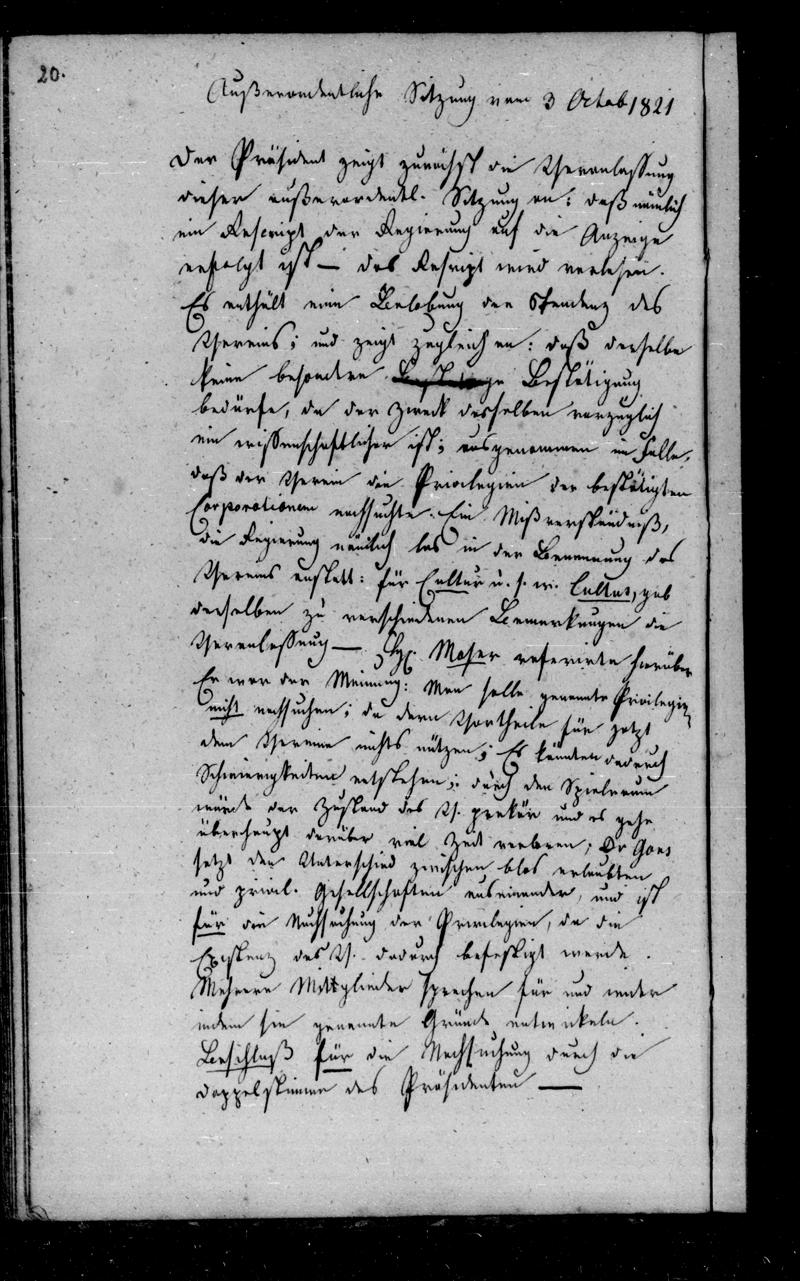 20.
Außerordentliche Sitzung vom 3 Octob 1821
Der Präsident zeigt zunächst die Veranlassung
dieser außerordentl. Sitzung an: daß nämlich
ein Rescript der Regierung auf die Anzeige
erfolgt ist — das Rescript wird verlesen.
Es enthält eine Belobung der Tendenz des
Vereins; und zeigt zugleich an: daß derselbe
keine besondere Bestätigung
bedürfe, da der Zweck desselben vorzüglich
ein wissenschaftlicher ist; ausgenommen im Falle,
daß der Verein die Privilegien der bestätigten
Corporationen nachsuchte. Ein Mißverständniß,
die Regierung nämlich las in der Benennung des
Vereins anstatt: für Cultur u. s. w. Cultus, gab
derselben zu verschiedenen Bemerkungen die
Veranlassung — H. Moser referirte hierüber
Er war der Meinung: Man solle genannte Privilegien
nicht nachsuchen; da deren Vortheile für jetzt
dem Vereine nichts nützen; Es könnten dadurch
Schwierigkeiten entstehen; durch den Spielraum
würde der Zustand des V. prekär und es gehe
überhaupt darüber viel Zeit verloren; Dr Gans
setzt den Unterschied zwischen blos erlaubten
und privil. Gesellschaften auseinander, und ist
für die Nachsuchung der Privilegien, da die
Existenz des V. dadurch befestigt werde.
Mehrere Mittglieder sprechen für und wider
indem sie genannte Gründe entwickeln.
Beschluß für die Nachsuchung durch die
Doppelstimme des Präsidenten —